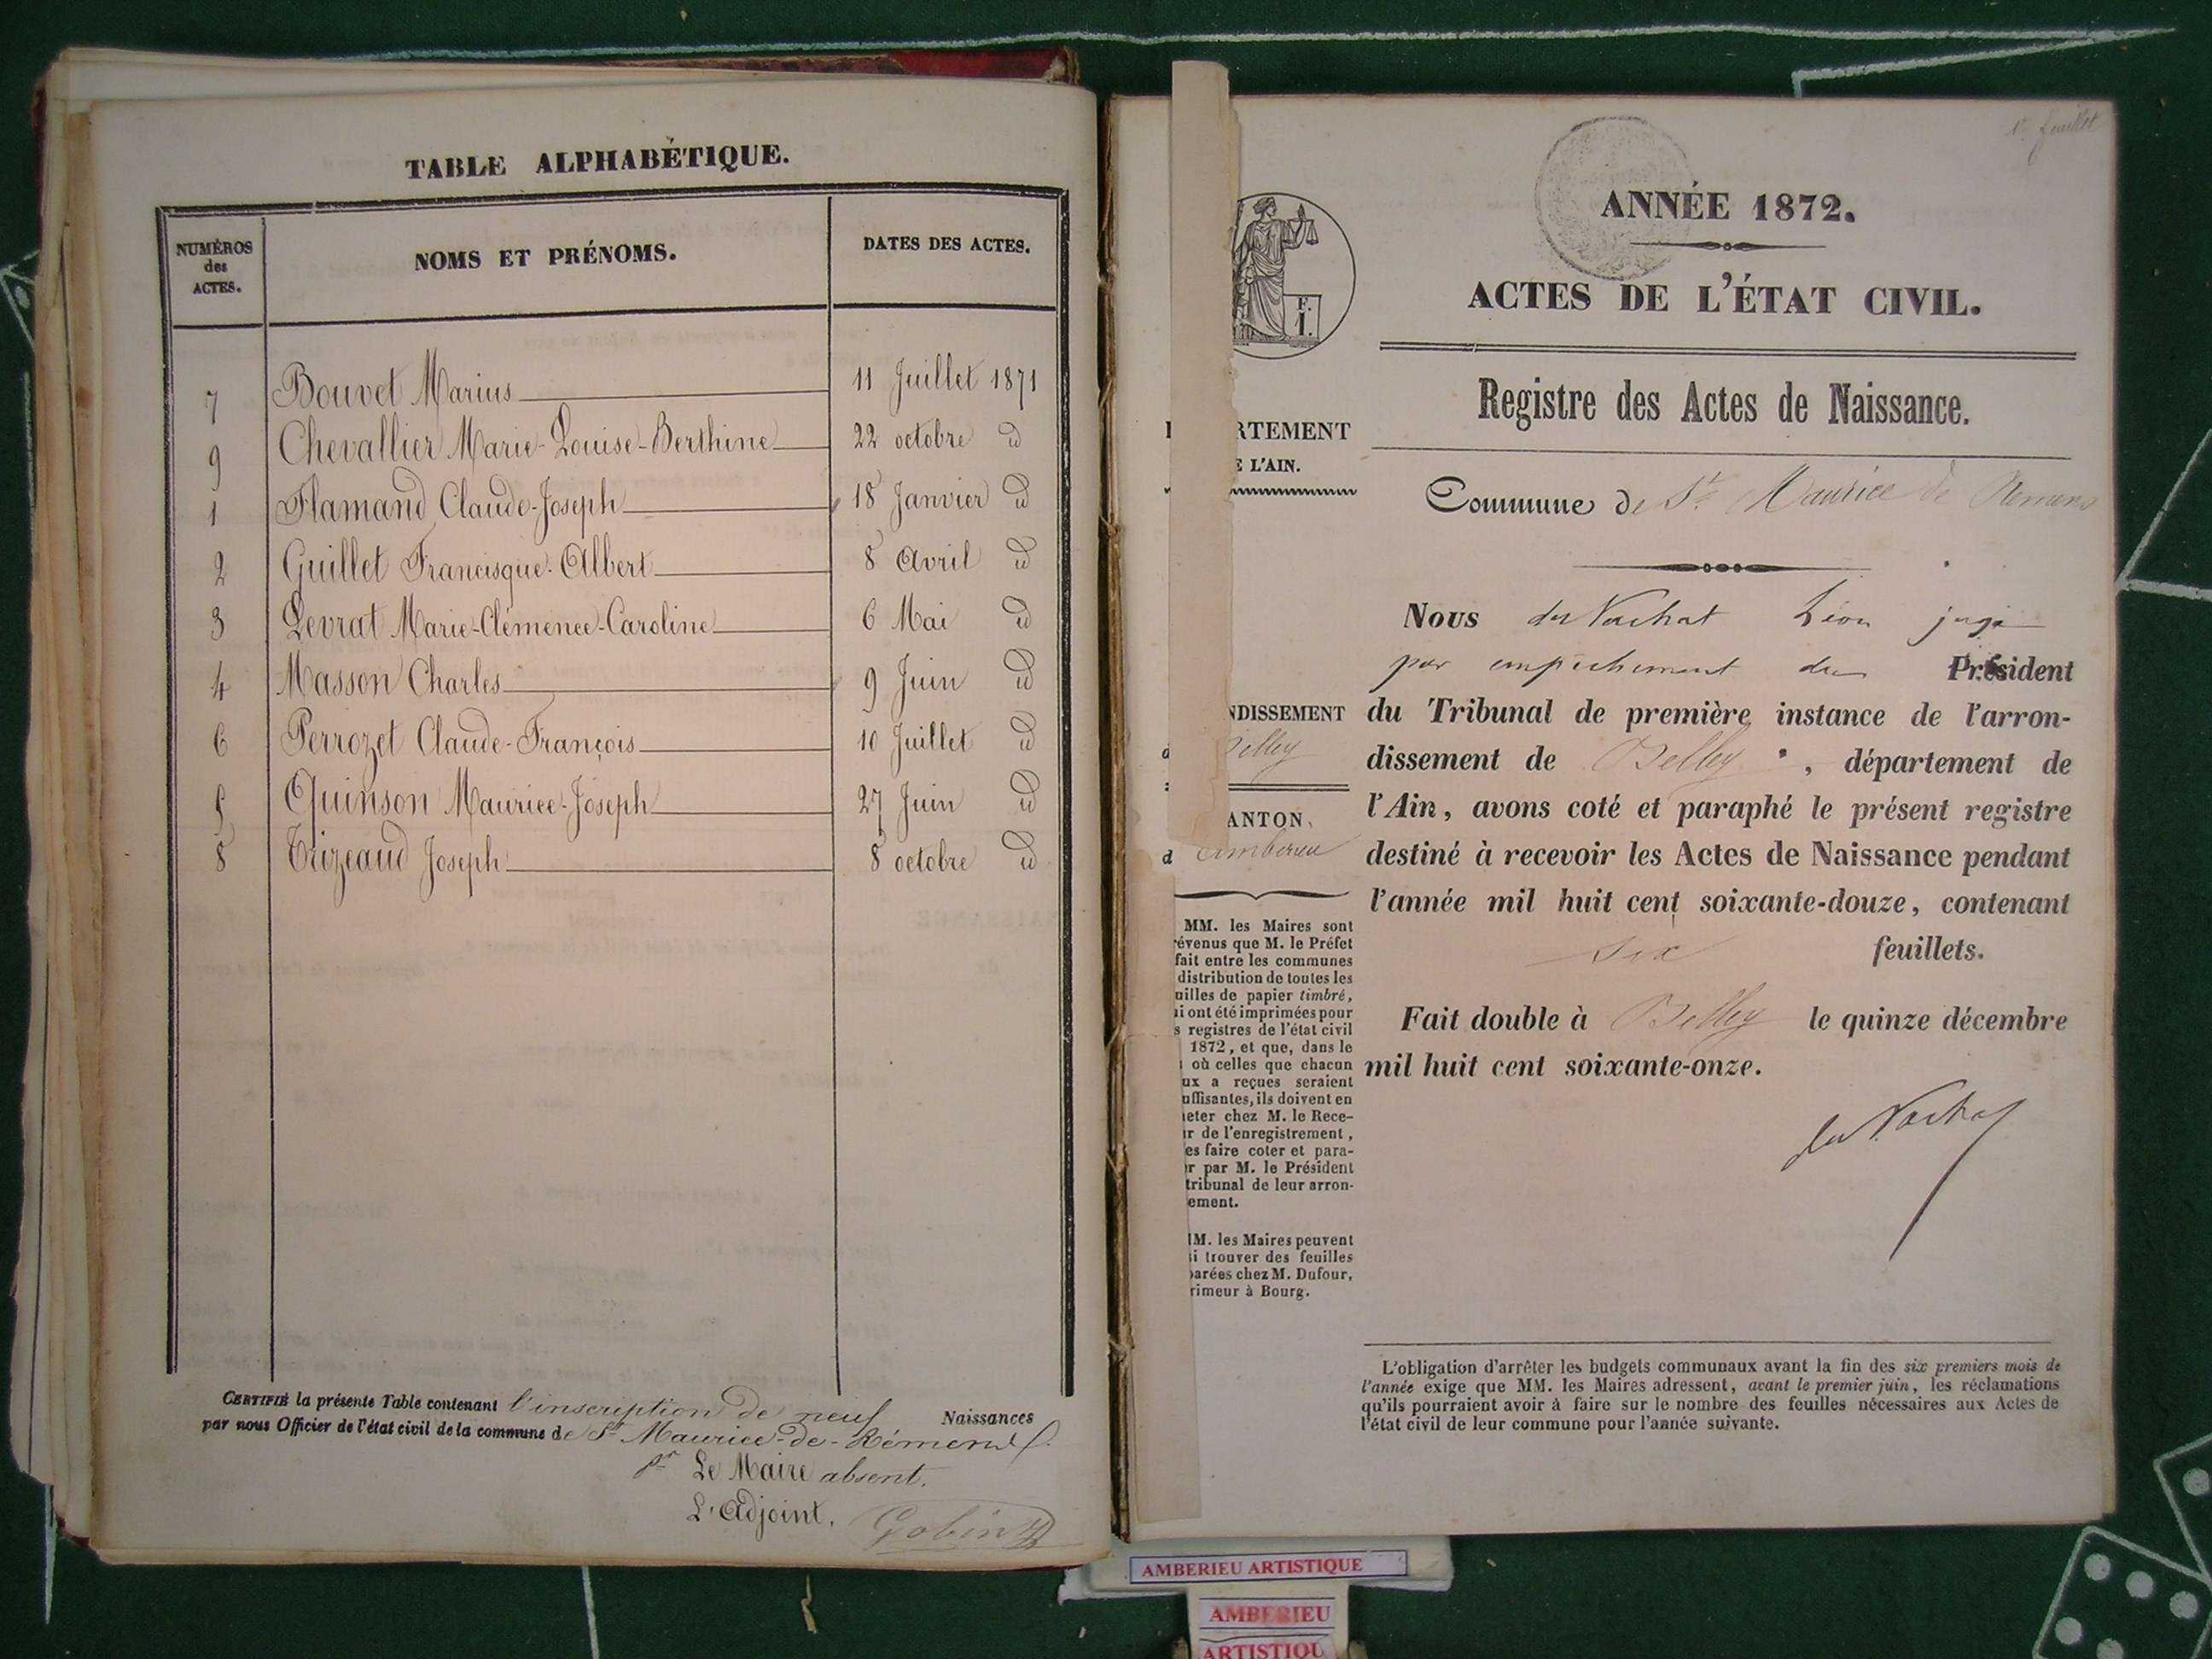 TABLE ALPHABÉTIQUE.
NUMÉROS des ACTES.
NOMS ET PRÉNOMS.
DATES DES ACTES.
7 Bouvet Marius 11 Juillet 1871
9 Chevallier Marie-Louise-Berthine 22 octobre id
1 Flamand Claude-Joseph 18 Janvier id
2 Guillet Francisque-Albert 8 Avril id
3 Levrat Marie-Clémence-Caroline 6 Mai id
4 Masson Charles 9 Juin id
6 Perrozet Claude-François 10 Juillet id
5 Quinson Maurice-Joseph 27 Juin id
8 Trizeaud Joseph 8 octobre id
CERTIFIÉ la présente Table contenant l'inscription de neuf Naissances
par nous Officier de l'état civil de la commune de St Maurice-de-Rémens
pr Le Maire absent.
L'Adjoint.
Gobin
1er feuillet
ANNÉE 1872.
ACTES DE L'ÉTAT CIVIL.
Registre des Actes de Naissance.
Commune de St Maurice de Remens
Nous du Vachat Léon juge
par empêchement du Président
du Tribunal de première instance de l'arron-
dissement de Belley, département de
l'Ain, avons coté et paraphé le présent registre
destiné à recevoir les Actes de Naissance pendant
l'année mil huit cent soixante-douze, contenant
six feuillets.
Fait double à Belley le quinze décembre
mil huit cent soixante-onze.
du Vachat
L'obligation d'arrêter les budgets communaux avant la fin des six premiers mois de
l'année exige que MM. les Maires adressent, avant le premier juin, les réclamations
qu'ils pourraient avoir à faire sur le nombre des feuilles nécessaires aux Actes de
l'état civil de leur commune pour l'année suivante.
F.
1.
RTEMENT
E L'AIN.
NDISSEMENT
d Belley
ANTON
d Amberieu
MM. les Maires sont
révenus que M. le Préfet
fait entre les communes
distribution de toutes les
uilles de papier timbré,
ui ont été imprimées pour
s registres de l'état civil
1872, et que, dans le
où celles que chacun
ux a reçues seraient
uffisantes, ils doivent en
heter chez M. le Rece-
ur de l'enregistrement,
es faire coter et para-
r par M. le Président
tribunal de leur arron-
ement.
MM. les Maires peuvent
si trouver des feuilles
parées chez M. Dufour,
rimeur à Bourg.
AMBERIEU ARTISTIQUE
AMBERIEU
ARTISTIQU